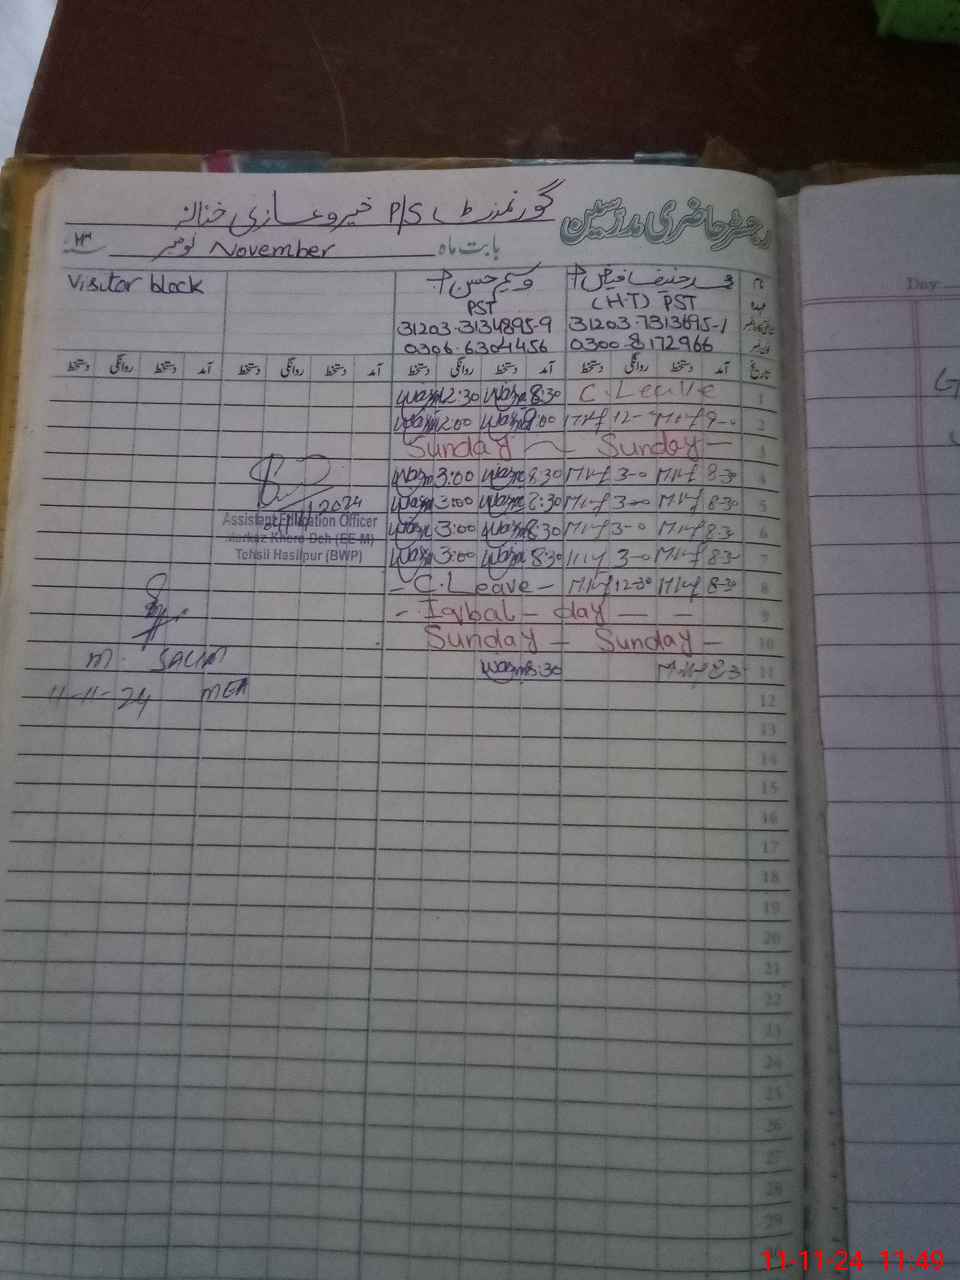 رجسٹر حاضری مدرسین گورنمنٹ P/S
بابت ماہ November نومبر
نام وسیم حسن Visitor block
عہدہ (H.T) PST PST
31203-7313695-1 31203-3134895-9
0300-8172966 0306-6304456
تاریخ آمد دستخط روانگی دستخط آمد دستخط روانگی دستخط آمد دستخط روانگی دستخط آمد دستخط روانگی دستخط
1 C.Leave 8:30 Wasm 12:30 Wasm
2 9-0 12- 9:00 Wasm 12:00 Wasm
3 Sunday - Sunday
4 8-30 3-0 8:30 Wasm 3:00 Wasm
5 8-30 3-0 8:30 Wasm 3:00 Wasm
6 8-3 3-0 8:30 Wasm 3:00 Wasm
7 8-3 3-0 8:30 Wasm 3:00 Wasm
8 8-30 12-30 - C.Leave -
9 - Iqbal - day - -
10 Sunday - Sunday -
11 8-3 8:30 Wasm
2024
Assistant Education Officer
Markaz Khero Deh (EE-M)
Tehsil Hasilpur (BWP)
M. SALIM
11-11-24 MEA
12
13
14
15
16
17
18
19
20
21
22
23
24
25
26
27
28
29
Day
11-11-24 11:49